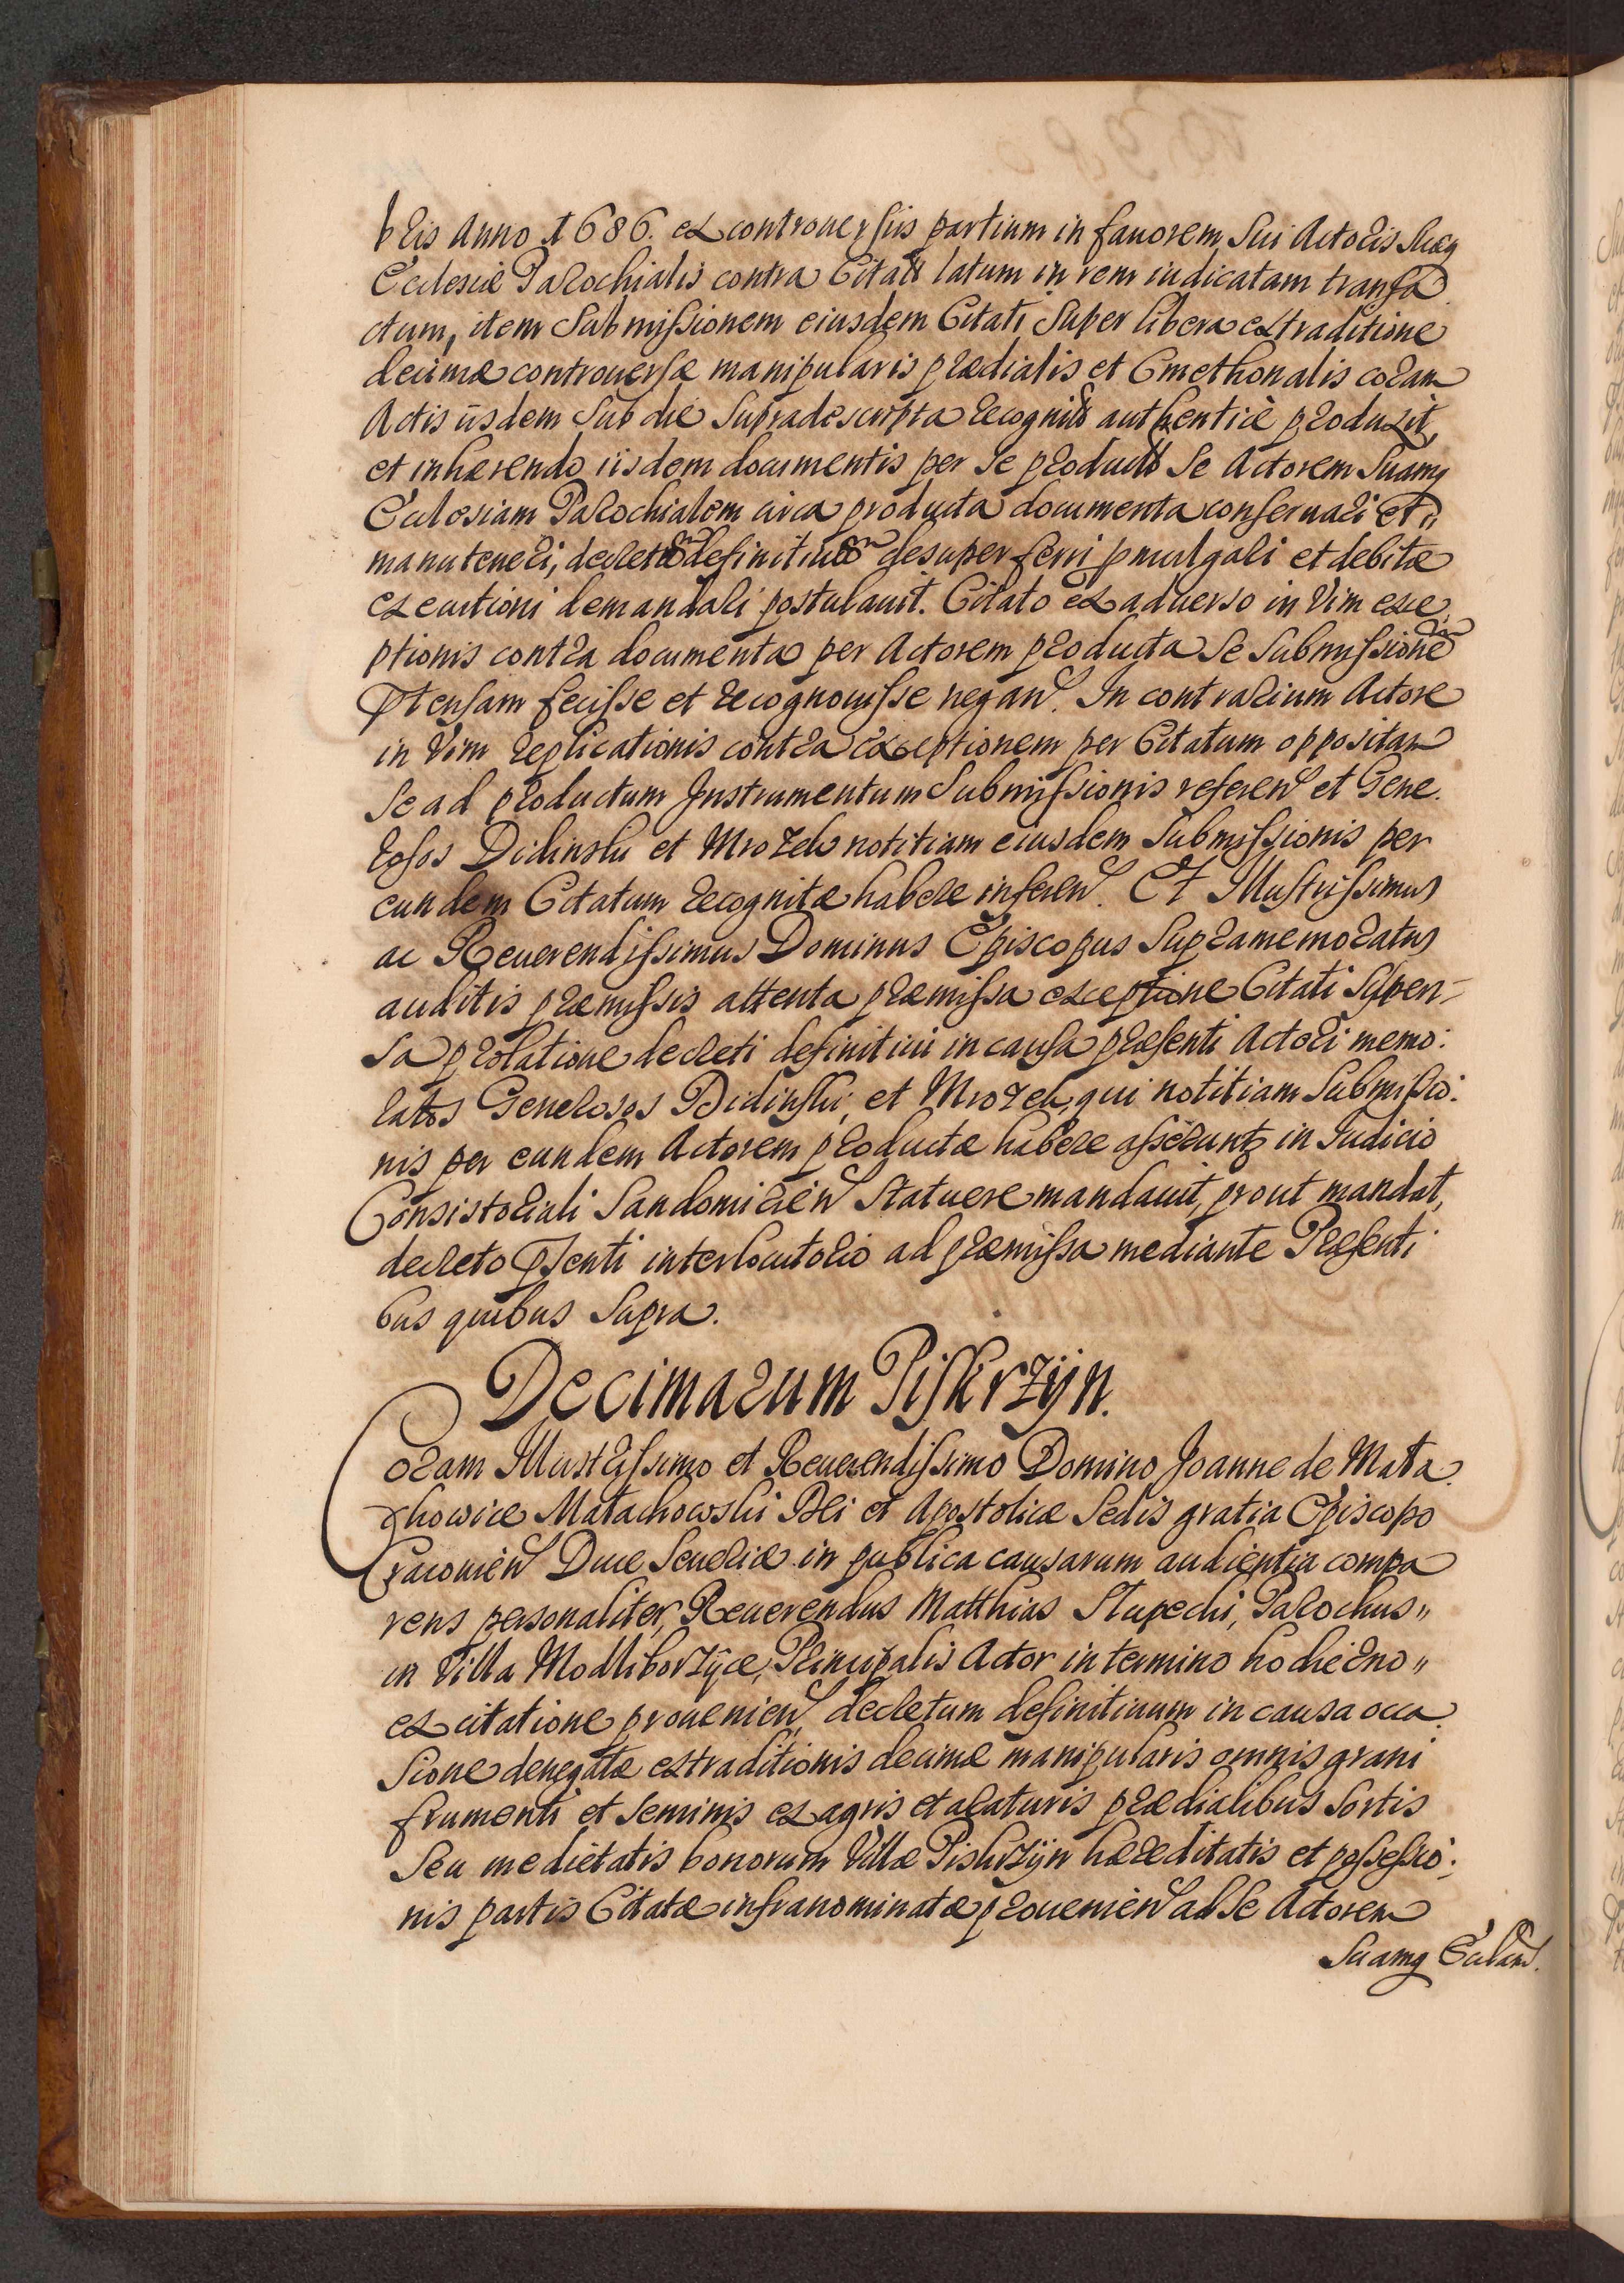 bris Anno 1686. ex controuersiis partium in fauorem sui Actoris suæq
Ecclesiæ Parochialis contra Citatū latum in rem iudicatam transa
ctum, item Submissionem eiusdem Citati super libera extraditione
decimæ controuersæ manipularis prædialis et Cmethonalis coram
Actis iisdem sub die supradescripta recognitā authenticè produxit,
et inhærendo iisdem documentis per se productis se Actorem suamq
Ecclesiam Parochialem circa producta documenta conseruari et
manuteneri, decretum definitiuum desuper ferri pmulgari et debitæ
executioni demandari postulauit. Citato ex aduerso in vim exce
ptionis contra documenta per Actorem producta se submissionem
Ptensam fecisse et recognouisse negan. In contrarium Actore
in vim replicationis contra exceptionem per Citatum oppositam
se ad productum Instrumentum Submissionis referen et Gene.
rosos Didinski et Mrozek notitiam eiusdem Submissionis per
eundem Citatum recognitæ habere inferen. Et Illustrissimus
ac Reuerendissimus Dominus Episcopus supramemoratus
auditis præmissis attenta præmissa exceptione Citati suspen-
sa prolatione decreti definitiui in causa præsenti Actori memo:
ratos Generosos Didinski, et Mrozek, qui notitiam submissio:
nis per eundem Actorem productæ habere asserunt in Iudicio
Consistoriali Sandomirien statuere mandauit, prout mandat,
decreto Psenti interlocutorio ad præmissa mediante Præsenti
bus quibus supra.
Decimarum Piskrzÿn.
Coram Illustrissimo et Reuerendissimo Domino Joanne de Mała
chowice Małachowski Dei et Apostolicæ Sedis gratia Episcopo
Cracouien Duce Seueriæ in publica causarum audientia compa
rens personaliter, Reuerendus Matthias Słupecki, Parochus"
in Villa Modliborzÿce, Principalis Actor in termino hodierno"
ex citatione prouenien, decretum definitiuum in causa occa
sione denegatæ extraditionis decimæ manipularis omnis grani
frumenti et seminis ex agris et araturis prædialibus sortis
seu medietatis bonorum Villæ Piskrzÿn hæreditatis et possessio:
nis partis Citatæ infranominatæ prouenien ad se Actorem
suamq Ecclam.